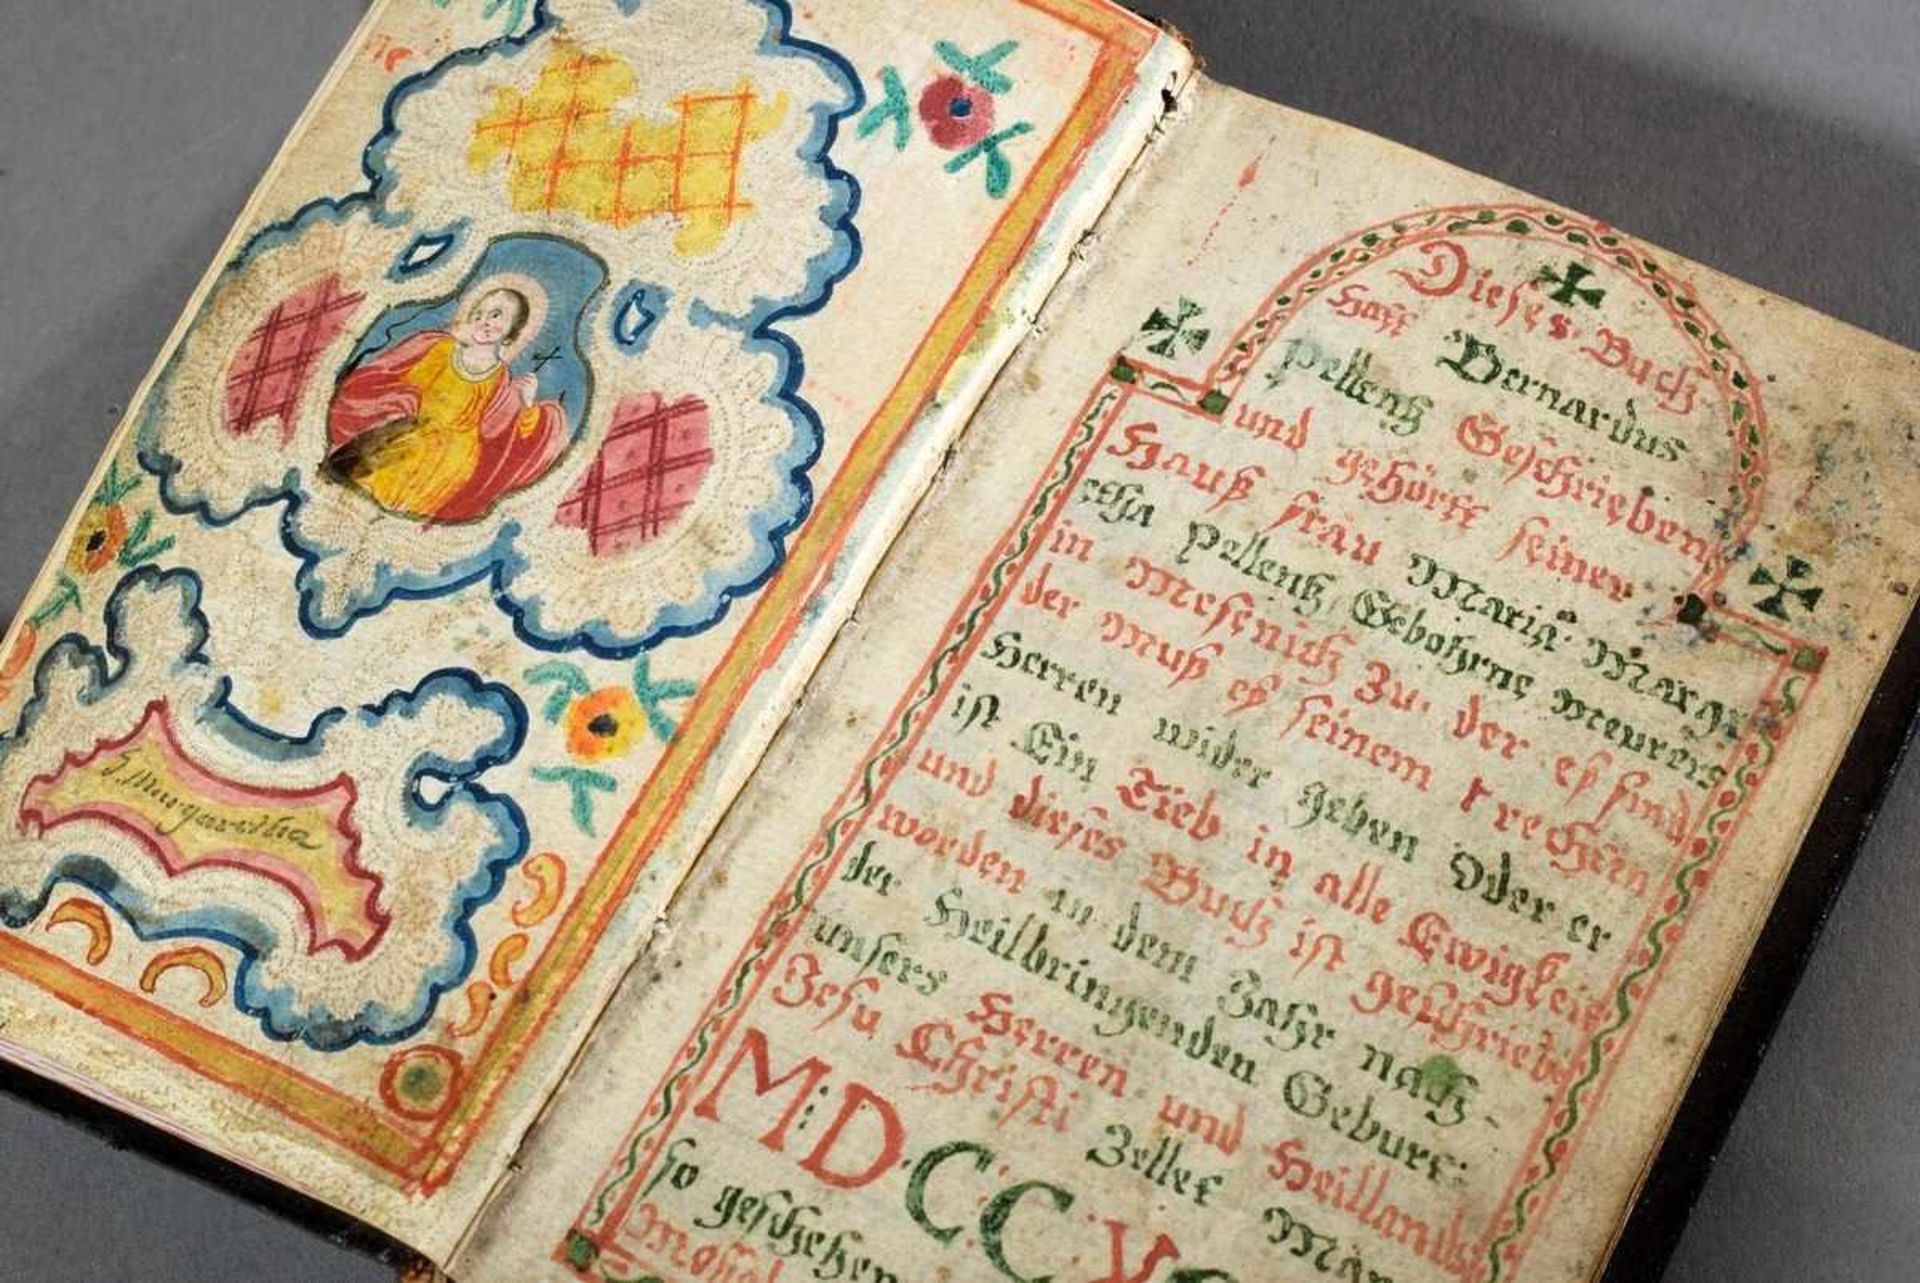 S. Margaretha
Dieses Buch
Hatt Bernardus
Pellentz Geschrieben
und gehörtt seiner
Hauß frau Maria: Margr
etha Pellentz Gebohrne Meureis
in Mesenich Zu. der eß find
der Muß eß seinem rrechten
Herren wider geben Oder er
ist Ein Tieb in alle Ewigkeit
und dieses Buch ist geschriebe
worden an dem Jahr nach
der Heilbringenden Geburt:
unsers Herren und Heillands
Jesu Christi Zeller
M:D:C:C:
so geschehen
Mossel